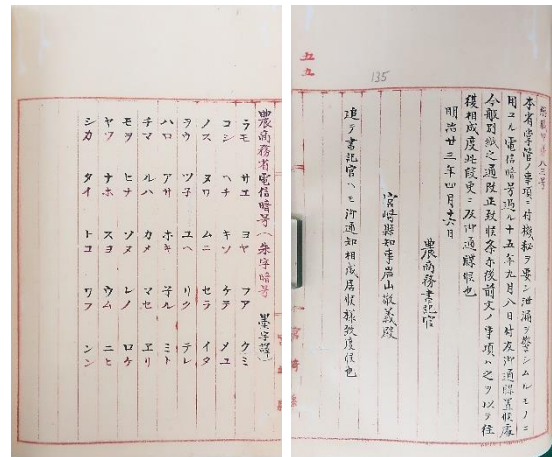 五五
135
本省専管ノ事項ニ付機秘ヲ要シ泄漏ヲ警シムルモノニ
用ユル電信暗号過ル十五年九月八日付ヲ以御通牒置候處
今般別紙之通改正致候条爾後前文ノ事項ハ之ヲ以テ往
復相成度此段更ニ及御通牒候也
明治廿三年四月十六日
農商務書記官
宮崎縣知事岩山敬義殿
追テ書記官ヘモ御通知相成居候様致度候也
農商務省電信暗号(朱字暗号 墨字譯)
ラモ サエ ヨヤ フア クミ
コシ ヘチ キソ ケテ メユ
ノス ヌワ ムニ セラ イタ
ヲウ ツ子 ユヘ リク テレ
ハロ アサ ホキ ヰル ミト
チマ ルハ カメ マセ ヱリ
モヲ ヒナ ソヌ レノ ロケ
ヤツ ナホ スヨ ウム ニヒ
シカ タイ トコ ワフ ンン